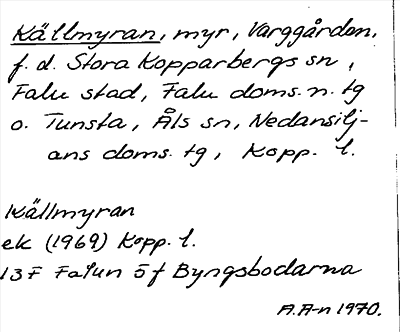 Källmyran, myr, Varggården,
f.d. Stora Kopparbergs sn,
Falu stad, Falu doms.n. tg
o. Tunsta, Åls sn, Nedansilj-
ans doms. tg, Kopp. l.
Källmyran
ek (1969) Kopp. l.
13F Falun 5f Byngsbodarna
A.A-n 1970.